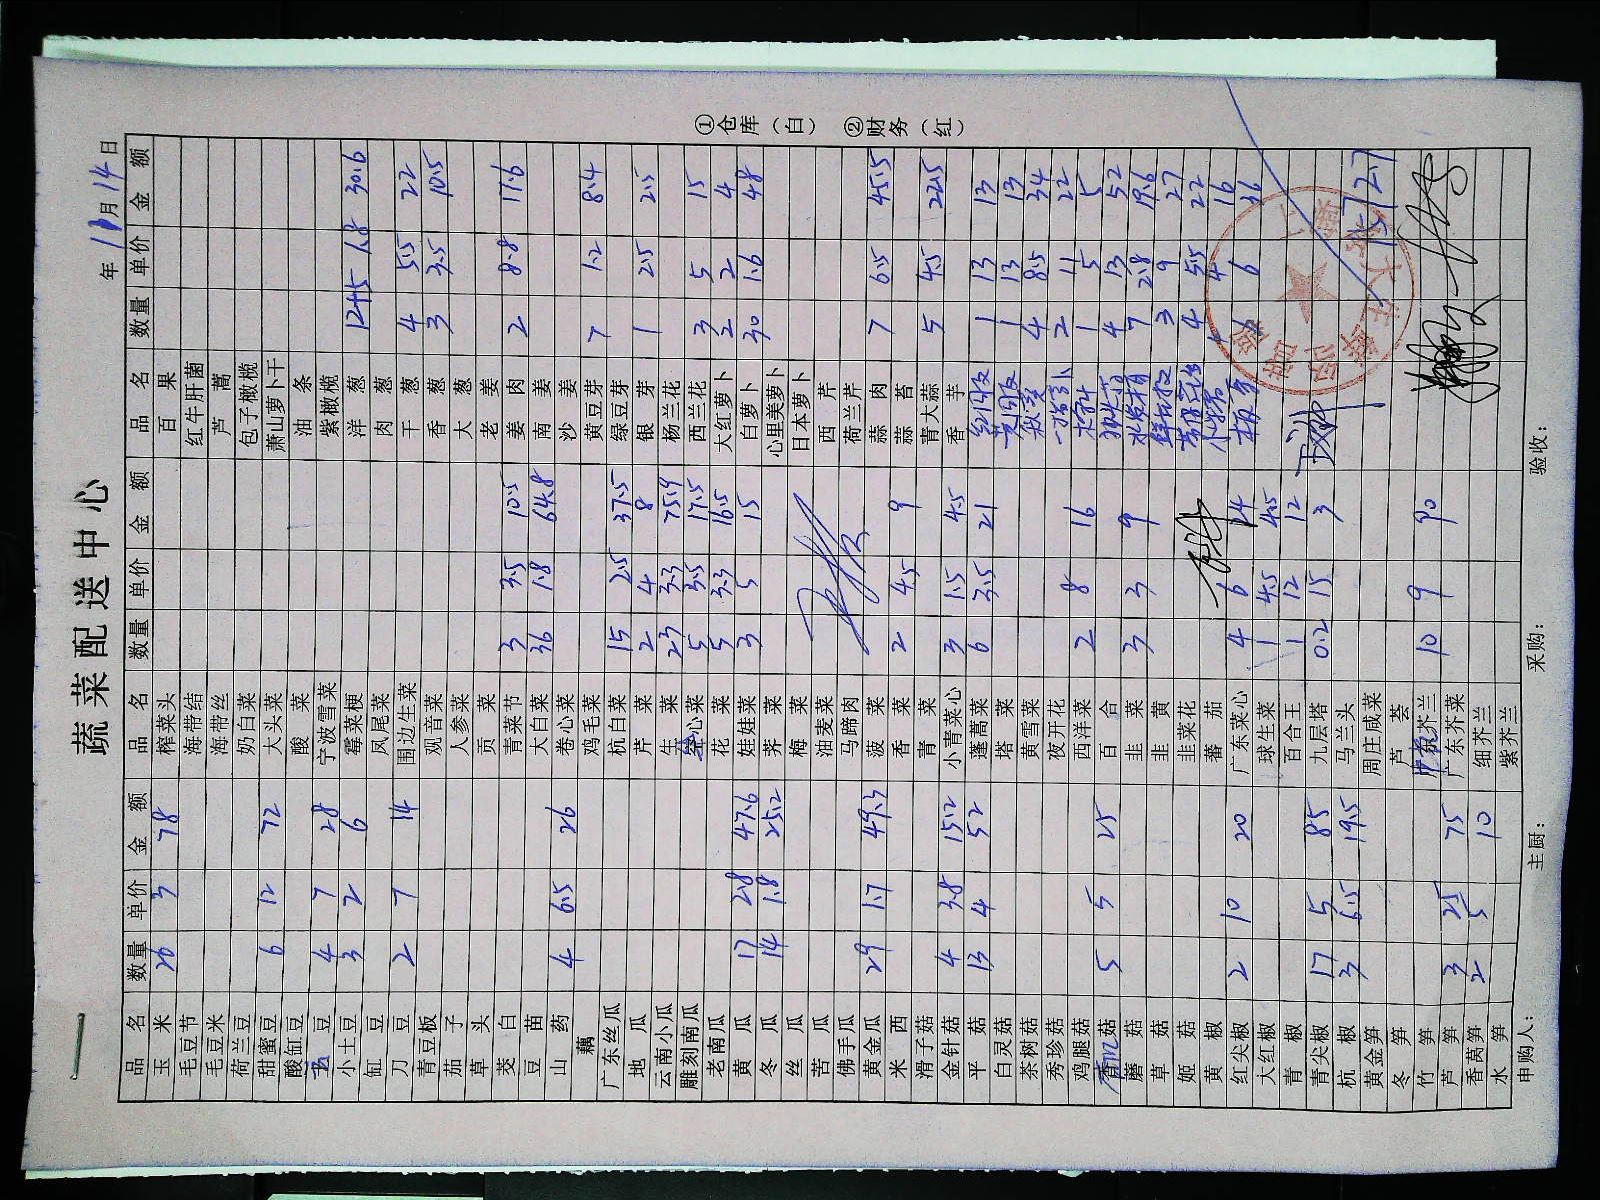 蔬菜配送中心
年 10月14日
品名 数量 单价 金额 品名 数量 单价 金额 品名 数量 单价 金额
玉米 26 3 78 榨菜头 百果
毛豆节 海带结 红牛肝菌
毛豆米 海带丝 芦蒿
荷兰豆 奶白菜 包子橄榄
甜蜜豆 6 12 72 大头菜 萧山萝卜干
酸缸豆 酸菜 油条
豆 4 7 28 宁波雪菜 紫橄榄
小土豆 3 2 6 霉菜梗 洋葱 1.8 30.6
缸豆 凤尾菜 肉葱
刀豆 2 7 14 围边生菜 干葱 4 5.5 22
青豆板 观音菜 香葱 3 3.5 10.5
茄子 人参菜 大葱
草头 贡菜 老姜
茭白 青菜节 3 3.5 10.5 姜肉 2 8.8 17.6
豆苗 大白菜 36 1.8 64.8 南姜
山药 4 6.5 26 卷心菜 沙姜
藕 鸡毛菜 黄豆芽 7 1.2 8.4
广东丝瓜 杭白菜 15 2.5 37.5 绿豆芽
地瓜 芹菜 2 4 8 银芽 1 2.5 2.5
云南小瓜 生菜 23 3.3 75.9 杨兰花
雕刻南瓜 心菜 5 3.5 17.5 西兰花 3 5 15
老南瓜 花菜 5 3.3 16.5 大红萝卜 2 2 4
黄瓜 17 2.8 47.6 娃娃菜 3 5 15 白萝卜 30 1.6 48
冬瓜 14 1.8 25.2 荠菜 心里美萝卜
丝瓜 梅菜 日本萝卜
苦瓜 油麦菜 西芹
佛手瓜 马蹄肉 荷兰芹
黄金瓜 29 1.7 49.3 菠菜 蒜肉 7 6.5 45.5
米西 香菜 2 4.5 9 蒜苔
滑子菇 青菜 青大蒜 5 4.5 22.5
金针菇 4 3.8 15.2 小青菜心 3 1.5 4.5 香芋
平菇 13 4 52 蓬蒿菜 6 3.5 21 红圆椒 1 13 13
白灵菇 塔菜 黄圆椒 1 13 13
茶树菇 黄雪菜 4 8.5 34
秀珍菇 夜开花 2 11 22
鸡腿菇 西洋菜 2 8 16 1 5 5
香菇 5 5 25 百合 4 13 52
蘑菇 韭菜 3 3 9 7 2.8 19.6
草菇 韭黄 3 9 27
姬菇 韭菜花 4 5.5 22
黄椒 番茄 4 4 16
红尖椒 2 10 20 广东菜心 4 6 24 6 6 36
大红椒 球生菜 1 4.5 4.5
青椒 百合王 1 12 12
青尖椒 17 5 85 九层塔 0.2 15 3
杭椒 3 6.5 19.5 马兰头
黄金笋 周庄咸菜
冬笋 芦荟
竹笋 芥兰 10 9 90
芦笋 3 25 75 广东芥菜
香莴笋 2 5 10 细芥兰
水笋 紫芥兰
申购人： 主厨： 采购： 验收：
①仓库（白） ②财务（红）